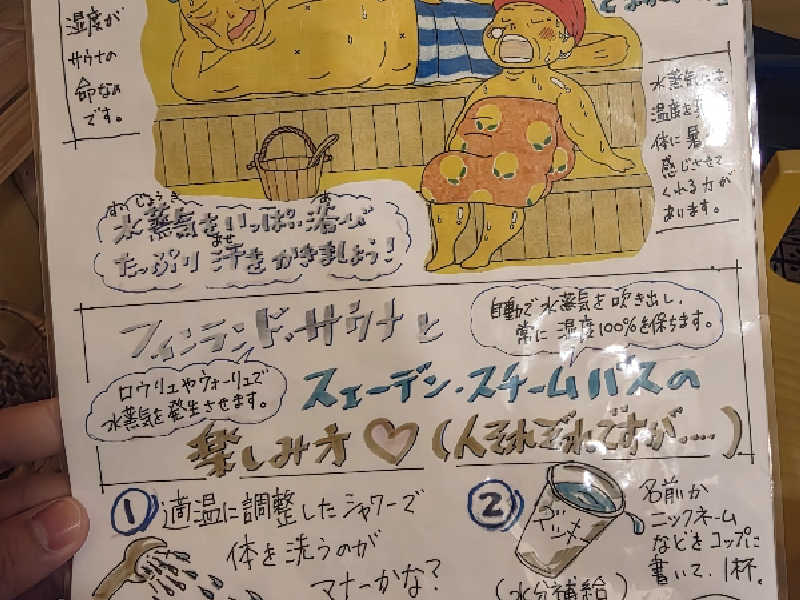 湿度が
サウナの
命なの
です。
体に
感じさせて
くれる力が
あります。
水蒸気をいっぱい浴び
たっぷり汗をかきましょう！
フィンランド・サウナと
自動で水蒸気を吹き出し、
常に湿度100%を保ちます。
ロウリュやヴォーリュで
水蒸気を発生させます。
スェーデン・スチームバスの
楽しみ方♡(人それぞれですが…)
① 適温に調整したシャワーで
体を洗うのが
マナーかな？
② 名前か
ニックネーム
などをコップに
書いて、1杯。
(水分補給)